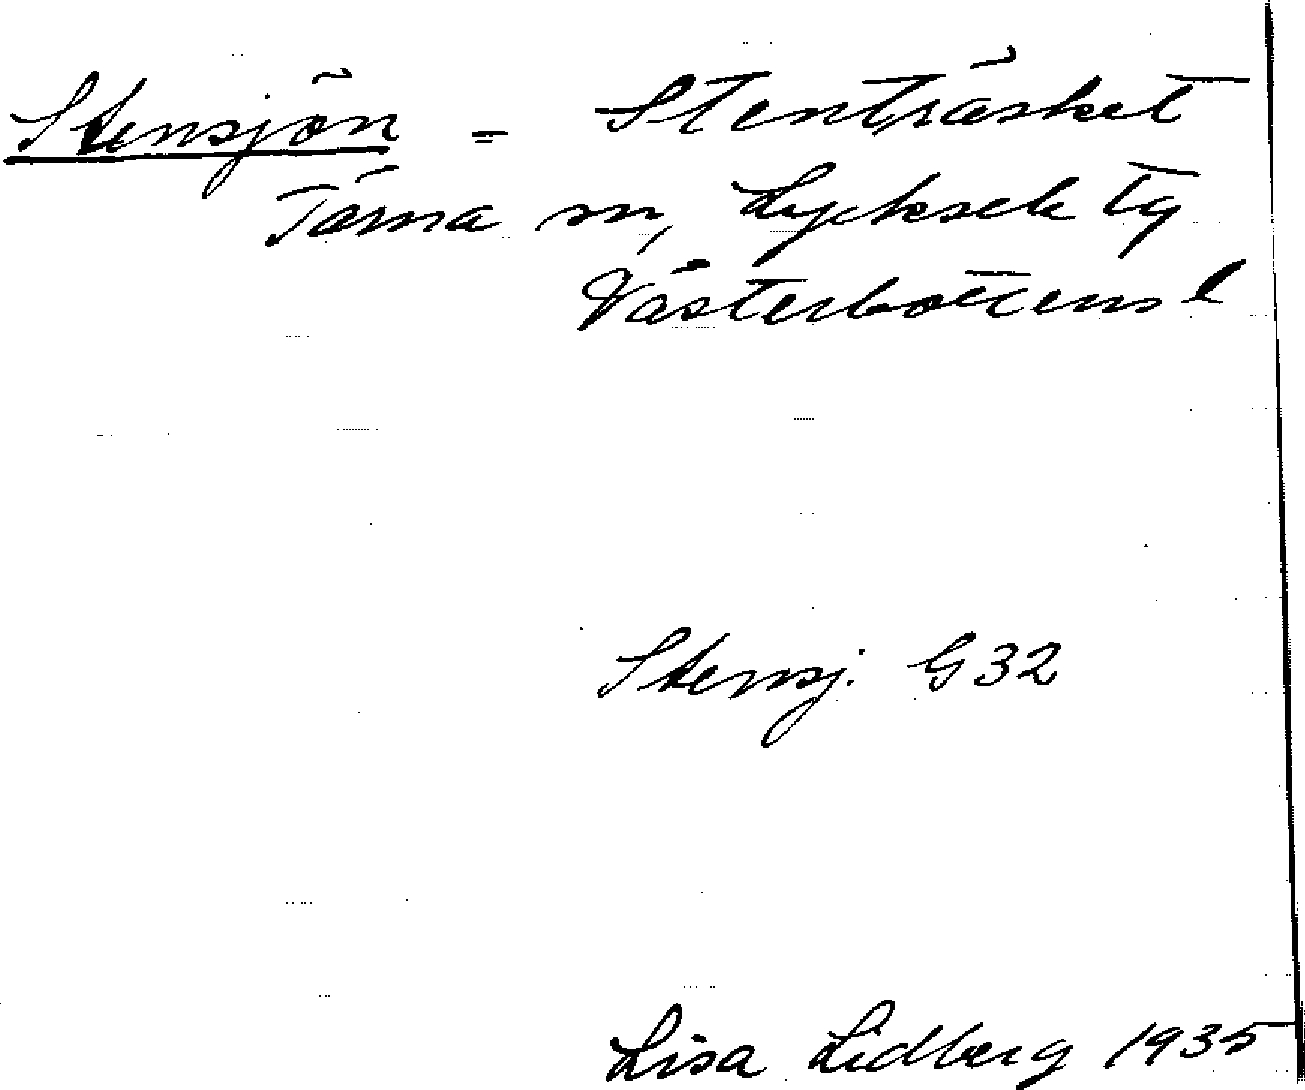 Stensjön = Stenträsket
Tärna sn, Lycksele tg
Västerbottens l
Stensj. G32
Lisa Lidberg 1935